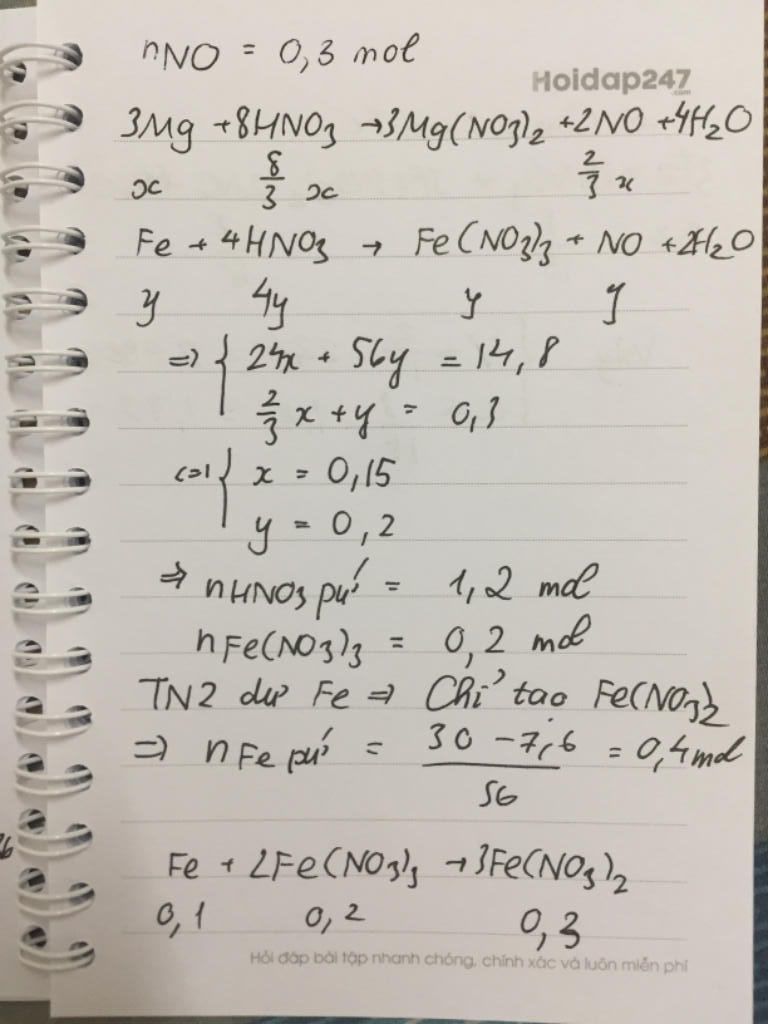 nNO = 0,3 mol
Hoidap247
.com
3Mg + 8HNO3 → 3Mg(NO3)2 + 2NO + 4H2O
x 8/3 x 2/3 x
Fe + 4HNO3 → Fe(NO3)3 + NO + 2H2O
y 4y y y
=> { 24x + 56y = 14,8
2/3 x + y = 0,3
<=> { x = 0,15
y = 0,2
=> nHNO3 pứ = 1,2 mol
nFe(NO3)3 = 0,2 mol
TN2 dư Fe => Chỉ tạo Fe(NO3)2
=> nFe pứ = 30 - 7,6 / 56 = 0,4 mol
Fe + 2Fe(NO3)3 → 3Fe(NO3)2
0,1 0,2 0,3
Hỏi đáp bài tập nhanh chóng, chính xác và luôn miễn phí